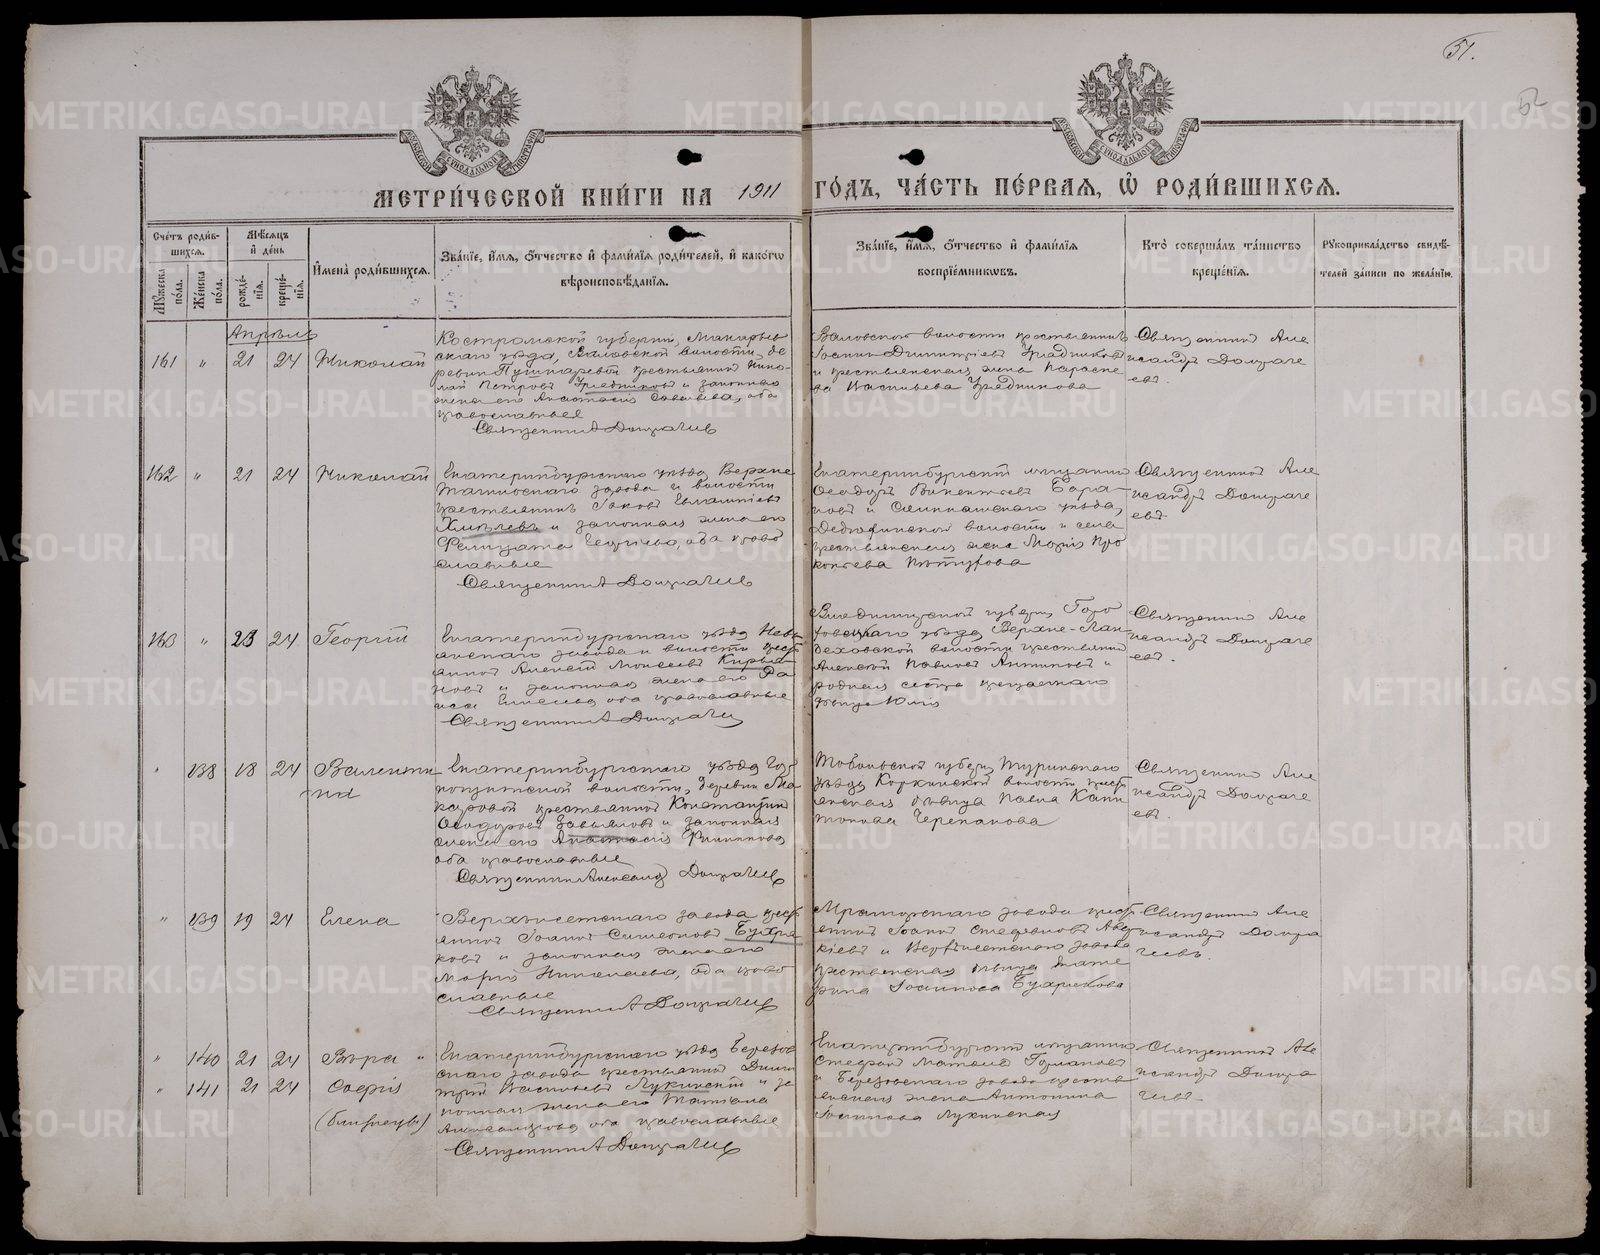 51.
52
МЕТРИ́ЧЕСКОЙ КНИ́ГИ НА 1911 ГО́ДЪ, ЧА́СТЬ ПЕ́РВАЯ, Ѡ҆ РОДИ́ВШИХСЯ.
Сче́тъ роди́в-
шихся.
Мꙋ́жеска по́ла.
Же́нска по́ла.
Мѣ́сяцъ
и҆ де́нь
рожде́-
нїя.
креще́-
нїя.
И҆мена̀ роди́вшихся.
Зва́нїе, и҆́мя, ѻ҆́тчество и҆ фами́лїя роди́телей, и҆ како́гѡ
вѣроисповѣ́данїя.
Зва́нїе, и҆́мя, ѻ҆́тчество и҆ фами́лїя
воспрїе́мникѡвъ.
Кто̀ соверша́лъ та́инство
креще́нїя.
Рꙋкоприкла́дство свидѣ́-
телей за́писи по жела́нїю.
Апрѣль
161 " 21 24 Николай
Костромской губернии, Макарьев
скаго уѣзда, Валовской волости, де
ревни крестьянинъ Нико-
лай Петровъ Урядниковъ и законная
жена его Анастасія Савельева, оба
православные
Священник А Дограчев
Валовской волости крестьянинъ
Іосиф Димитріевъ Урядниковъ
и крестьянская жена Параске
ва Васильева Урядникова
Священник Але
ксандръ
евъ.
162 " 21 24 Николай
Екатеринбургскаго уѣзда Верхне
Тагильскаго завода и волости
крестьянинъ Іаковъ Евлампіевъ
Хмѣлевъ и законная жена его
Фелицата Георгіева, оба право
славные
Екатеринбургскій мѣщанин
Ѳеодоръ Викентьевъ Бара-
новъ и уѣзда,
волости и села
крестьянская жена Марія Про
копьева Пѣтухова
Священник Але
ксандръ
евъ.
163 " 23 24 Георгій
Екатеринбургскаго уѣзда Невь
янскаго завода и волости крест
янин Алексѣй Моисеевъ Кирья
новъ и законная жена его Ра
иса оба православные
Владимирской губерн. Горо
ховецкаго уѣзда, Верхне-Лан-
деховской волости крестьянин
Алексѣй Павловъ Антиповъ и
родная сестра крещаемаго
дѣвица Юлія
Священник Але
ксандръ
евъ.
" 138 18 24 Валенти
на
Екатеринбургскаго уѣзда Гор
нощитской волости, деревни Ма
каровой крестьянин Константин
Ѳеодоровъ Завьяловъ и законная
жена его Анастасія Филиппова
оба православные
Тобольской губерн. Туринскаго
уѣзда Коркинской волости крест
янская дѣвица Павла Капи
тонова Черепанова
Священник Але
ксандръ
евъ.
" 139 19 24 Елена
Верхъ-Исетскаго завода крест
янин Іоаннъ Симеоновъ Бухря
ковъ и законная жена его
Марія Николаева, оба право
славные
Мраморскаго завода крест
янин Іоаннъ Стефановъ Авер
кіевъ и Верхъ-Исетскаго завода
крестьянская дѣвица Екате
рина Іосифова Бухрякова
Священник Але
ксандръ
чевъ.
" 140 21 24 Вѣра "
" 141 21 24 Софія
(близнецы)
Екатеринбургскаго уѣзда Березов
скаго завода крестьянин Дими
трій Васильевъ Лукинскій и за
конная жена его Татіана
Александрова оба православные
Екатеринбургскій мѣщанин
Стефан Матвѣев Гурмановъ
и Березовскаго завода крестья
янская жена Антонина
Іосифова Лукинская
Священник Але
ксандръ
чевъ.
METRIKI.GASO-URAL.RU